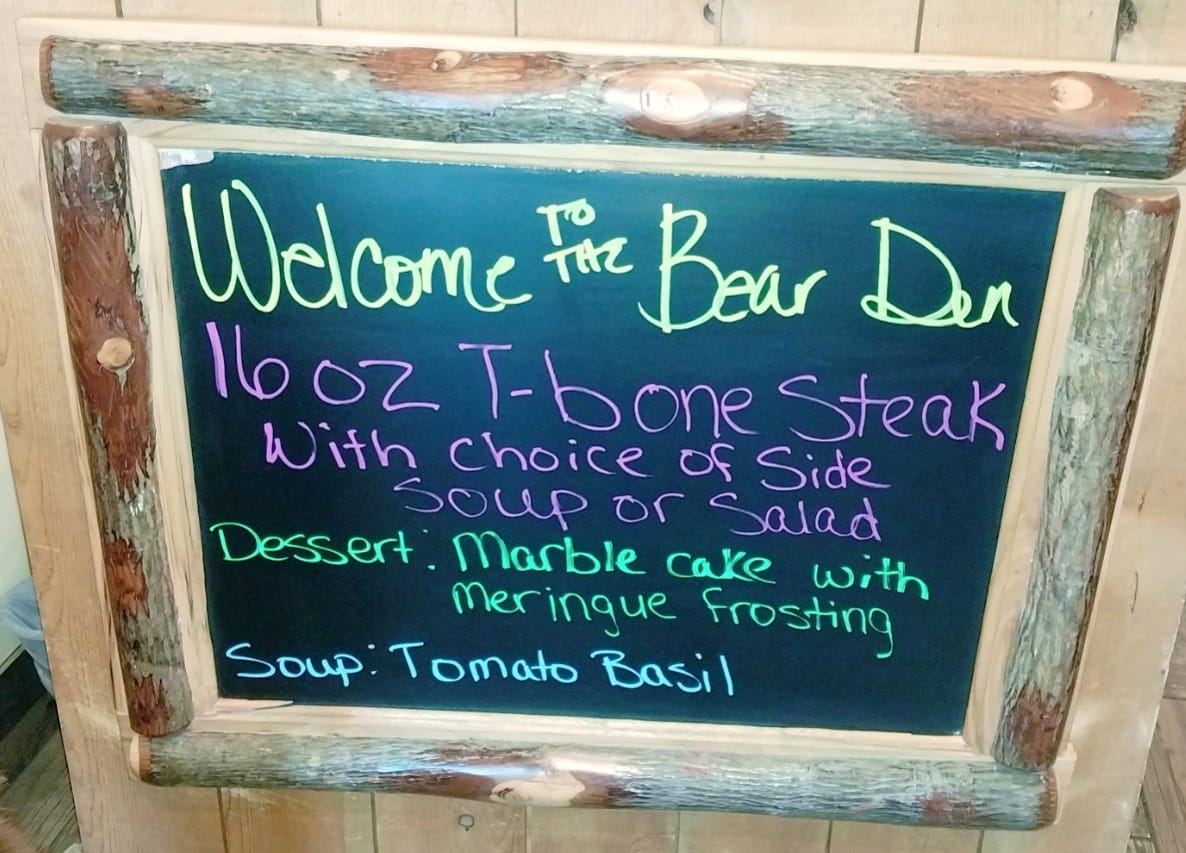 Welcome TO THE Bear Den
16 oz T-bone Steak
With choice of Side
Soup or Salad
Dessert: Marble cake with
Meringue frosting
Soup: Tomato Basil